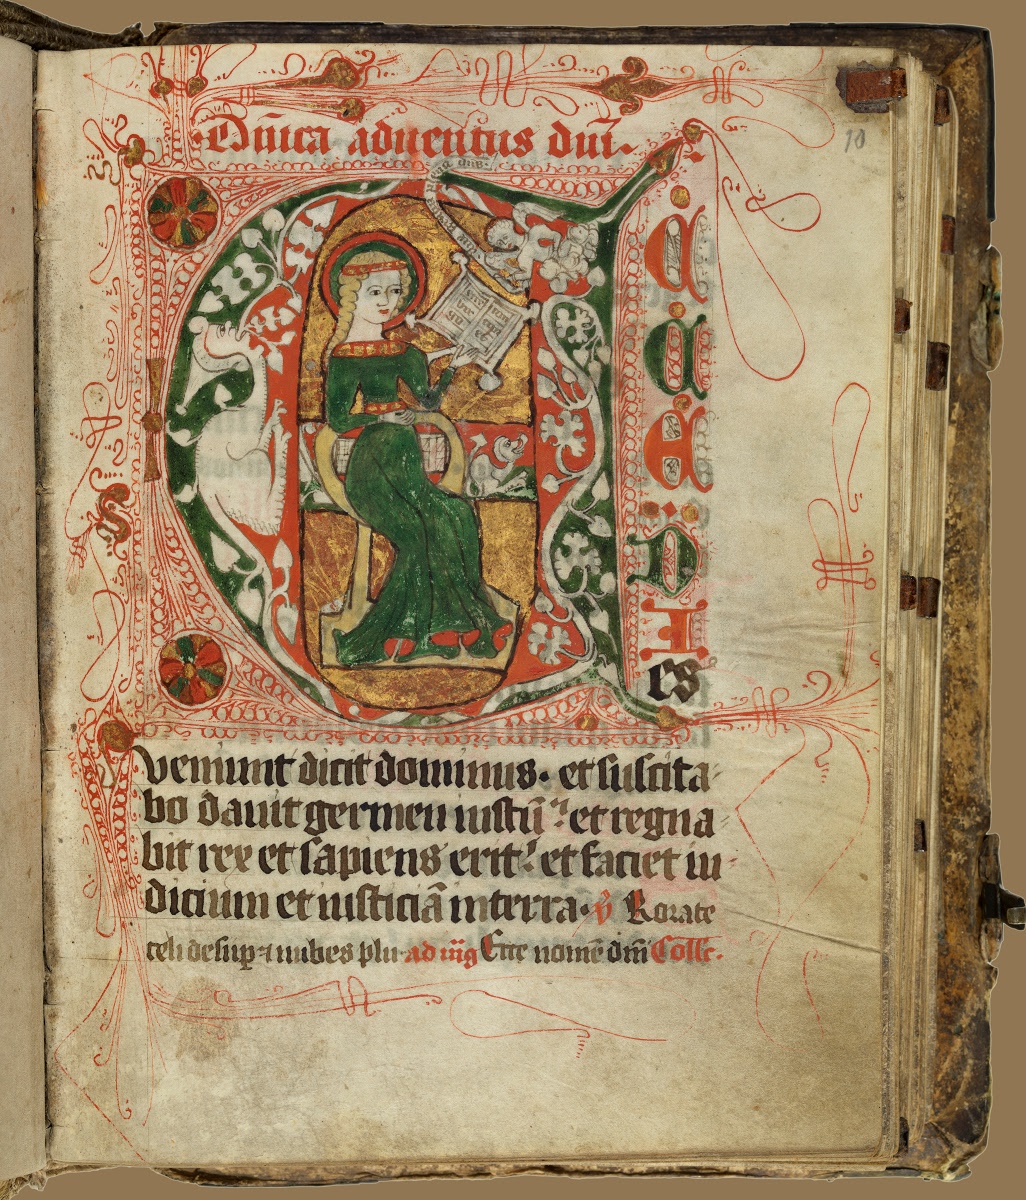 Dn̄ica aduentus dnī.
10
E
C
C
E
D
I
es
veniunt dicit dominus. et suscita
bo dauit germen iustū et regna
bit rex et sapiens erit et faciet iu
dicium et iusticiā in terra. V̄ Rorate
celi desup ⁊ nubes plu. ad m̄g Ecce nomē dn̄i Coll'c.